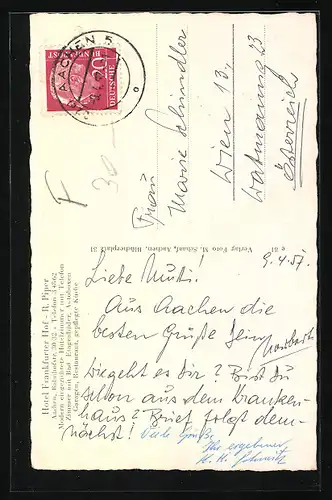 AACHEN 5
DEUTSCHE
BUNDESPOST
20
F
30.-
Frau
Marie Schindler
Wien 13,
Watmanng 23
Österreich
Hotel Frankfurter Hof - R. Piper
Aachen, Bahnhofstr. 30/32 - Telefon
Modern eingerichtete Hotelzimmer mit Telefon
Zimmer mit Bad Etagenbäder, Autoboxen
Garagen, Restaurant, gepflegte Küche
Verlag Foto M. Schaaf, Aachen, Büchnerplatz 31
9.4.57.
Liebe Mutti!
Aus Aachen die
besten Grüße Dein
Norbert
Wie geht es dir? Bist du
schon aus dem Kranken-
haus? Brief folgt dem-
nächst! Viele Grüße
Ihr ergebener
H. H. Schmitz